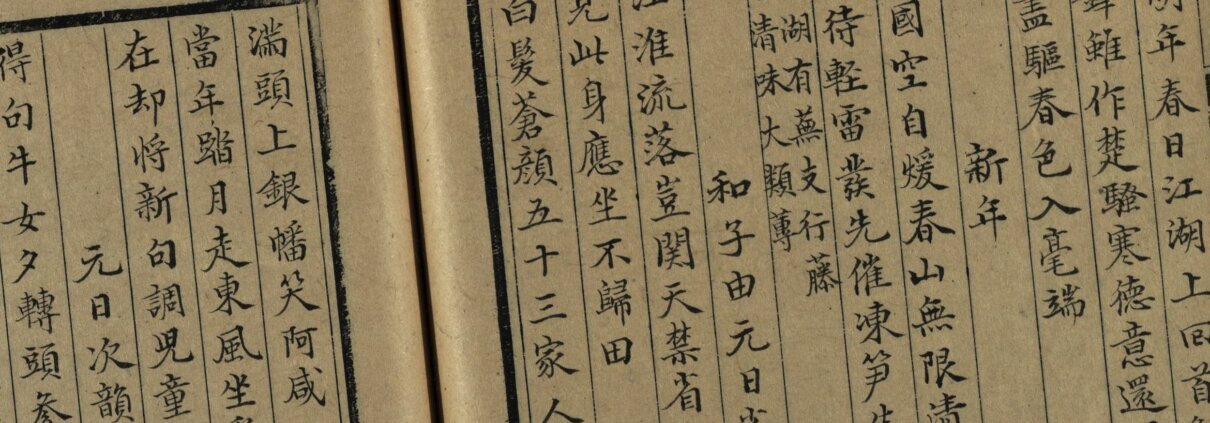 年春日江湖上回首
鋒雖作楚騷寒德意還
盖驅春色入毫端
新年
國空自煖春山無限清
待軽雷發先催凍笋生
湖有蕪支行藤
清味大類蓴
和子由元日省
江淮流落豈関天禁省
見此身應坐不歸田
白髮蒼顔五十三家人
滿頭上銀幡笑阿咸
當年踏月走東風坐
在却將新句調兒童
元日次韻
得句牛女夕轉頭參